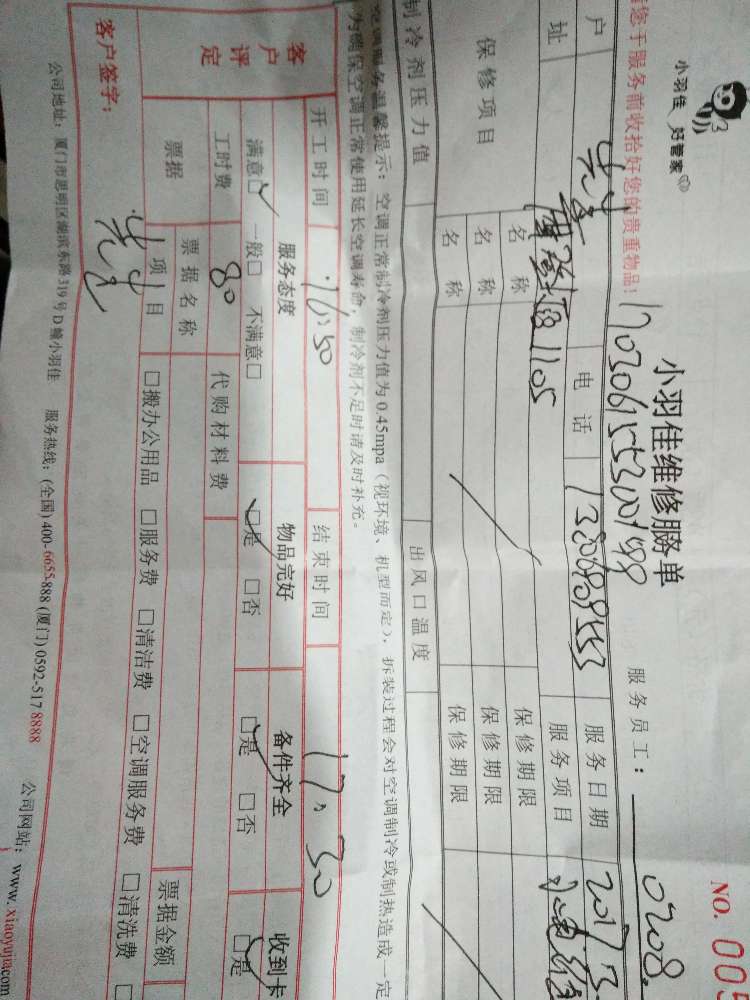 小羽佳 好管家
NO. 005
小羽佳维修服务单
服务员工： 0208
您于服务前收拾好您的贵重物品！
户
电话
服务日期 2017.3
址 1105
服务项目
保修项目
名称
保修期限
名称
保修期限
名称
保修期限
制冷剂压力值
出风口温度
空调服务温馨提示：空调正常制冷剂压力值为0.45mpa（视环境、机型而定），拆装过程会对空调制冷或制热造成一定
为确保空调正常使用延长空调寿命，制冷剂不足时请及时补充。
开工时间 16:50 结束时间 17:30
客户评定
服务态度 物品完好 备件齐全 收到卡
满意□ 一般□ 不满意□ □是 □否 □是 □否 □是
工时费 80 代购材料费
票据 票据名称 票据金额
项目 □搬办公用品 □服务费 □清洁费 □空调服务费 □清洗费 □
客户签字：
公司地址：厦门市思明区湖滨东路319号D幢小羽佳 服务热线：(全国) 400-6655-888 (厦门) 0592-517 8888 公司网站：www.xiaoyujia.com